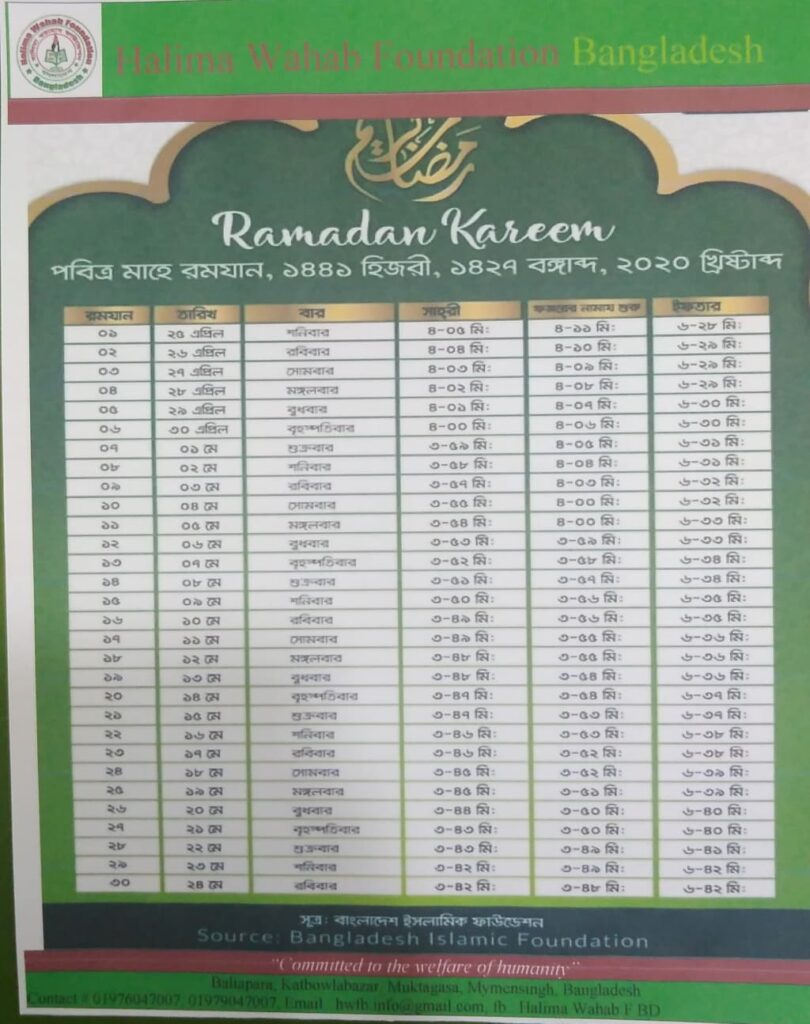 Halima Wahab Foundation
Bangladesh
Halima Wahab Foundation Bangladesh
رمضان كريم
Ramadan Kareem
পবিত্র মাহে রমযান, ১৪৪১ হিজরী, ১৪২৭ বঙ্গাব্দ, ২০২০ খ্রিষ্টাব্দ
রমযান তারিখ বার সাহরী ফজরের নামায শুরু ইফতার
০১ ২৫ এপ্রিল শনিবার ৪-০৫ মি: ৪-১১ মি: ৬-২৮ মি:
০২ ২৬ এপ্রিল রবিবার ৪-০৪ মি: ৪-১০ মি: ৬-২৯ মি:
০৩ ২৭ এপ্রিল সোমবার ৪-০৩ মি: ৪-০৯ মি: ৬-২৯ মি:
০৪ ২৮ এপ্রিল মঙ্গলবার ৪-০২ মি: ৪-০৮ মি: ৬-২৯ মি:
০৫ ২৯ এপ্রিল বুধবার ৪-০১ মি: ৪-০৭ মি: ৬-৩০ মি:
০৬ ৩০ এপ্রিল বৃহস্পতিবার ৪-০০ মি: ৪-০৬ মি: ৬-৩০ মি:
০৭ ০১ মে শুক্রবার ৩-৫৯ মি: ৪-০৫ মি: ৬-৩১ মি:
০৮ ০২ মে শনিবার ৩-৫৮ মি: ৪-০৪ মি: ৬-৩১ মি:
০৯ ০৩ মে রবিবার ৩-৫৭ মি: ৪-০৩ মি: ৬-৩২ মি:
১০ ০৪ মে সোমবার ৩-৫৫ মি: ৪-০০ মি: ৬-৩২ মি:
১১ ০৫ মে মঙ্গলবার ৩-৫৪ মি: ৪-০০ মি: ৬-৩৩ মি:
১২ ০৬ মে বুধবার ৩-৫৩ মি: ৩-৫৯ মি: ৬-৩৩ মি:
১৩ ০৭ মে বৃহস্পতিবার ৩-৫২ মি: ৩-৫৮ মি: ৬-৩৪ মি:
১৪ ০৮ মে শুক্রবার ৩-৫১ মি: ৩-৫৭ মি: ৬-৩৪ মি:
১৫ ০৯ মে শনিবার ৩-৫০ মি: ৩-৫৬ মি: ৬-৩৫ মি:
১৬ ১০ মে রবিবার ৩-৪৯ মি: ৩-৫৬ মি: ৬-৩৫ মি:
১৭ ১১ মে সোমবার ৩-৪৯ মি: ৩-৫৫ মি: ৬-৩৬ মি:
১৮ ১২ মে মঙ্গলবার ৩-৪৮ মি: ৩-৫৫ মি: ৬-৩৬ মি:
১৯ ১৩ মে বুধবার ৩-৪৮ মি: ৩-৫৪ মি: ৬-৩৬ মি:
২০ ১৪ মে বৃহস্পতিবার ৩-৪৭ মি: ৩-৫৪ মি: ৬-৩৭ মি:
২১ ১৫ মে শুক্রবার ৩-৪৭ মি: ৩-৫৩ মি: ৬-৩৭ মি:
২২ ১৬ মে শনিবার ৩-৪৬ মি: ৩-৫৩ মি: ৬-৩৮ মি:
২৩ ১৭ মে রবিবার ৩-৪৬ মি: ৩-৫২ মি: ৬-৩৮ মি:
২৪ ১৮ মে সোমবার ৩-৪৫ মি: ৩-৫২ মি: ৬-৩৯ মি:
২৫ ১৯ মে মঙ্গলবার ৩-৪৫ মি: ৩-৫১ মি: ৬-৩৯ মি:
২৬ ২০ মে বুধবার ৩-৪৪ মি: ৩-৫০ মি: ৬-৪০ মি:
২৭ ২১ মে বৃহস্পতিবার ৩-৪৩ মি: ৩-৫০ মি: ৬-৪০ মি:
২৮ ২২ মে শুক্রবার ৩-৪৩ মি: ৩-৪৯ মি: ৬-৪১ মি:
২৯ ২৩ মে শনিবার ৩-৪২ মি: ৩-৪৯ মি: ৬-৪২ মি:
৩০ ২৪ মে রবিবার ৩-৪২ মি: ৩-৪৮ মি: ৬-৪২ মি:
সূত্র: বাংলাদেশ ইসলামিক ফাউন্ডেশন
Source: Bangladesh Islamic Foundation
"Committed to the welfare of humanity"
Baliapara, Katbowlabazar, Muktagasa, Mymensingh, Bangladesh
Contact # 01976047007, 01979047007, Email hwfb.info@gmail.com, fb Halima Wahab F BD